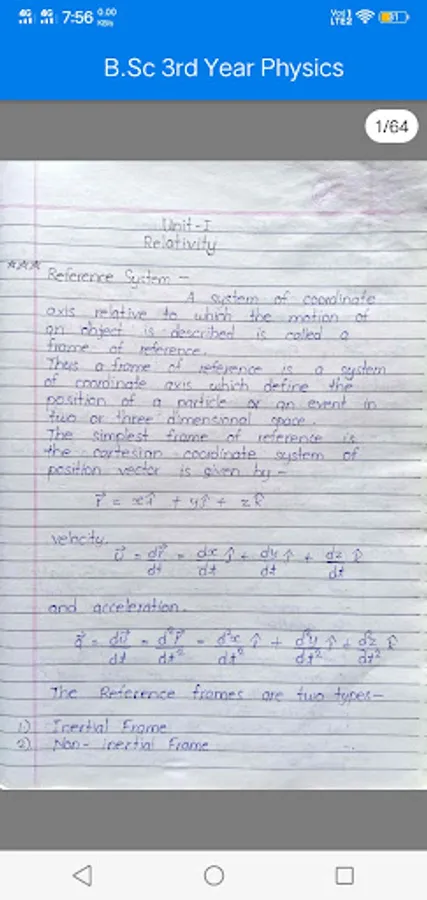 7:56 0.00 KB/s
Vo) LTE2
B.Sc 3rd Year Physics
1/64
Unit-I
Relativity
*** Reference System –
A system of coordinate
axis relative to which the motion of
an object is described is called a
frame of reference.
Thus a frame of reference is a system
of coordinate axis which define the
position of a particle or an event in
two or three dimensional space.
The simplest frame of reference is
the cartesian coordinate system of
position vector is given by –
r⃗ = xî + yĵ + zk̂
velocity.
v⃗ = dr⃗/dt = dx/dt î + dy/dt ĵ + dz/dt k̂
and acceleration.
a⃗ = dv⃗/dt = d²r⃗/dt² = d²x/dt² î + d²y/dt² ĵ + d²z/dt² k̂
The Reference frames are two types–
1) Inertial Frame
2) Non-inertial Frame